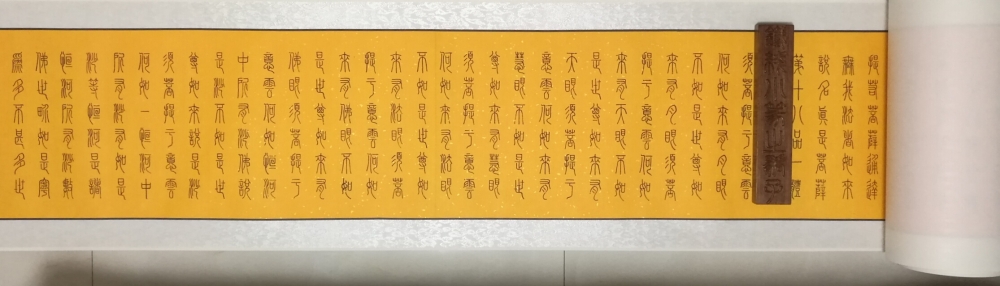 提若菩薩通達
無我法者如來
說名真是菩薩
第十八品一體
須菩提於意雲
何如來有肉眼
不如是世尊如
來有肉眼須菩
提於意雲何如
來有天眼不如
是世尊如來有
天眼須菩提於
意雲何如來有
慧眼不如是世
尊如來有慧眼
須菩提於意雲
何如來有法眼
不如是世尊如
來有法眼須菩
提於意雲何如
來有佛眼不如
是世尊如來有
佛眼須菩提於
意雲何如恒河
中所有沙佛說
是沙不如是世
尊如來說是沙
須菩提於意雲
何如一恒河中
所有沙有如是
沙等恒河是諸
恒河所有沙數
佛世界如是寧
為多不甚多世